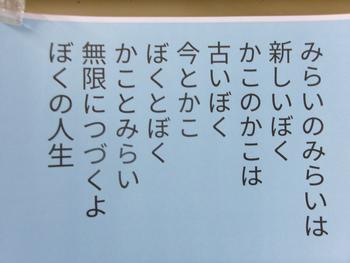 みらいのみらいは
新しいぼく
かこのかこは
古いぼく
今とかこ
ぼくとぼく
かことみらい
無限につづくよ
ぼくの人生